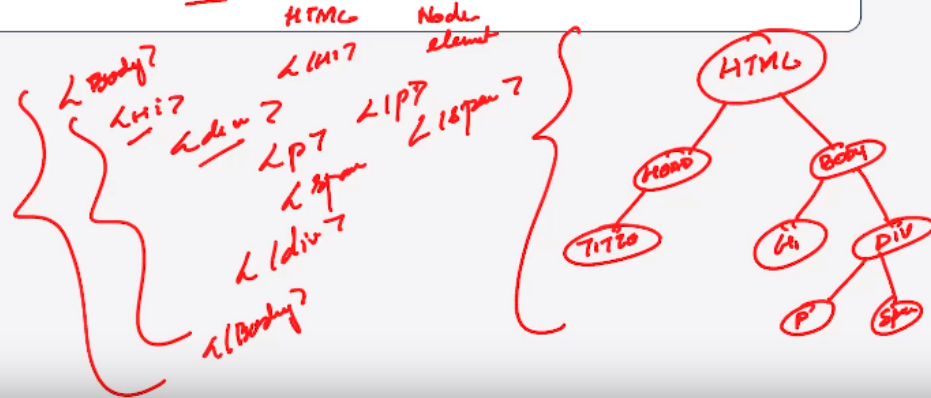 HTML Node
element
<Body>
<H1> </H1>
<div>
<p> </p>
<span </span>
</div>
</Body>
HTML
HEAD BODY
TITLE H1 DIV
P Span